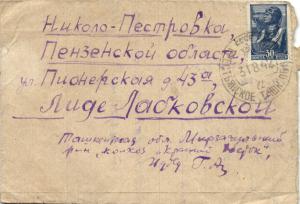 Николо-Пестровка
Пензенской области,
ул. Пионерская д 43а,
Лиде Лабковской
Ташкентская обл. Мирзачульский
р-н, колхоз
30